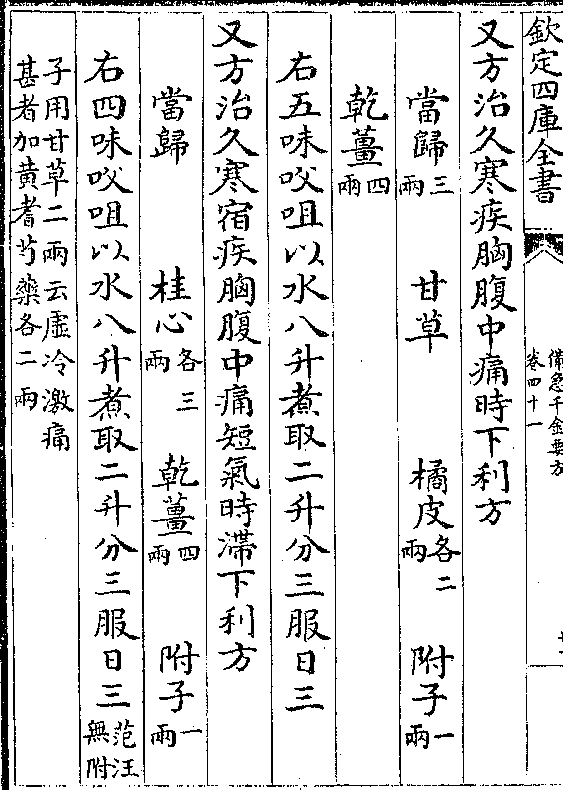 欽定四庫全書
備急千金要方
卷四十一
又方治久寒疾胸腹中痛時下利方
當歸三兩 甘草 橘皮各二兩 附子一兩
乾薑四兩
右五味㕮咀以水八升煮取二升分三服日三
又方治久寒宿疾胸腹中痛短氣時滯下利方
當歸 桂心各三兩 乾薑四兩 附子一兩
右四味㕮咀以水八升煮取二升分三服日三范汪無附
子用甘草二兩云虛冷激痛
甚者加黄耆芍藥各二兩